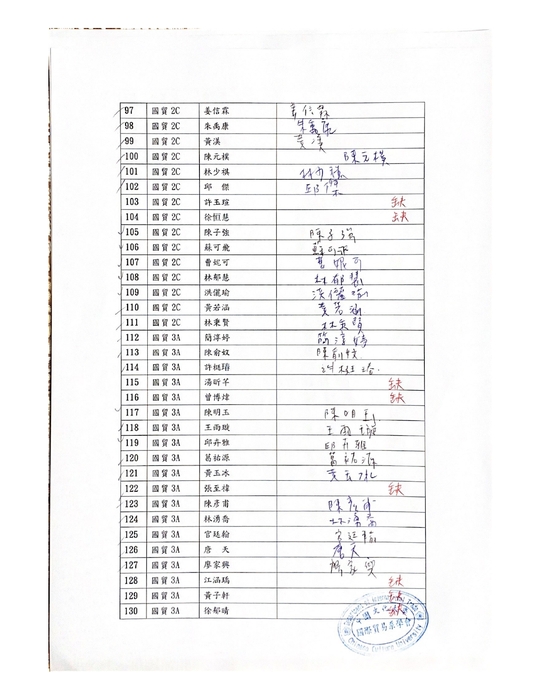 97 國貿 2C 姜信霖 姜信霖
98 國貿 2C 朱禹康 朱禹康
99 國貿 2C 黃淏 黃淏
100 國貿 2C 陳元樸 陳元樸
101 國貿 2C 林少祺 林少祺
102 國貿 2C 邱 傑 邱傑
103 國貿 2C 許玉瑄 缺
104 國貿 2C 徐恒慧 缺
105 國貿 2C 陳子強 陳子強
106 國貿 2C 蘇可飛 蘇可飛
107 國貿 2C 曹妮可 曹妮可
108 國貿 2C 林郁慧 林郁慧
109 國貿 2C 洪儷瑜 洪儷瑜
110 國貿 2C 黃若涵 黃若涵
111 國貿 2C 林秉賢 林秉賢
112 國貿 3A 簡渟婷 簡渟婷
113 國貿 3A 陳俞妏 陳俞妏
114 國貿 3A 許珽瑨
115 國貿 3A 湯昕芊 缺
116 國貿 3A 曾博煒 缺
117 國貿 3A 陳明玉 陳明玉
118 國貿 3A 王雨璇 王雨璇
119 國貿 3A 邱卉雅 邱卉雅
120 國貿 3A 葛祐源 葛祐源
121 國貿 3A 黃玉冰
122 國貿 3A 張至禕 缺
123 國貿 3A 陳彥甫 陳彥甫
124 國貿 3A 林湧喬 林湧喬
125 國貿 3A 官廷翰 官廷翰
126 國貿 3A 唐 天 唐天
127 國貿 3A 廖家興 廖家興
128 國貿 3A 江涵瑀 缺
129 國貿 3A 黃子軒 缺
130 國貿 3A 徐郁晴 缺
中國文化
國際貿易系學會
Chinese Culture University